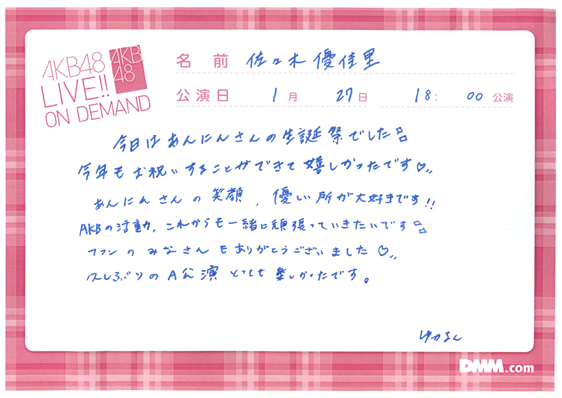 AKB48 AKB48
LIVE!!
ON DEMAND
名前 佐々木優佳里
公演日 1月 27日 18:00 公演
今日はあんにんさんの生誕祭でした♫
今年もお祝いすることができて嬉しかったです♡
あんにんさんの笑顔、優しい所が大好きです!!
AKBの活動、これからも一緒に頑張っていきたいです♫
ファンのみなさんもありがとうございました♡
久しぶりのA公演とっても楽しかったです。
ゆかるん
DMM.com